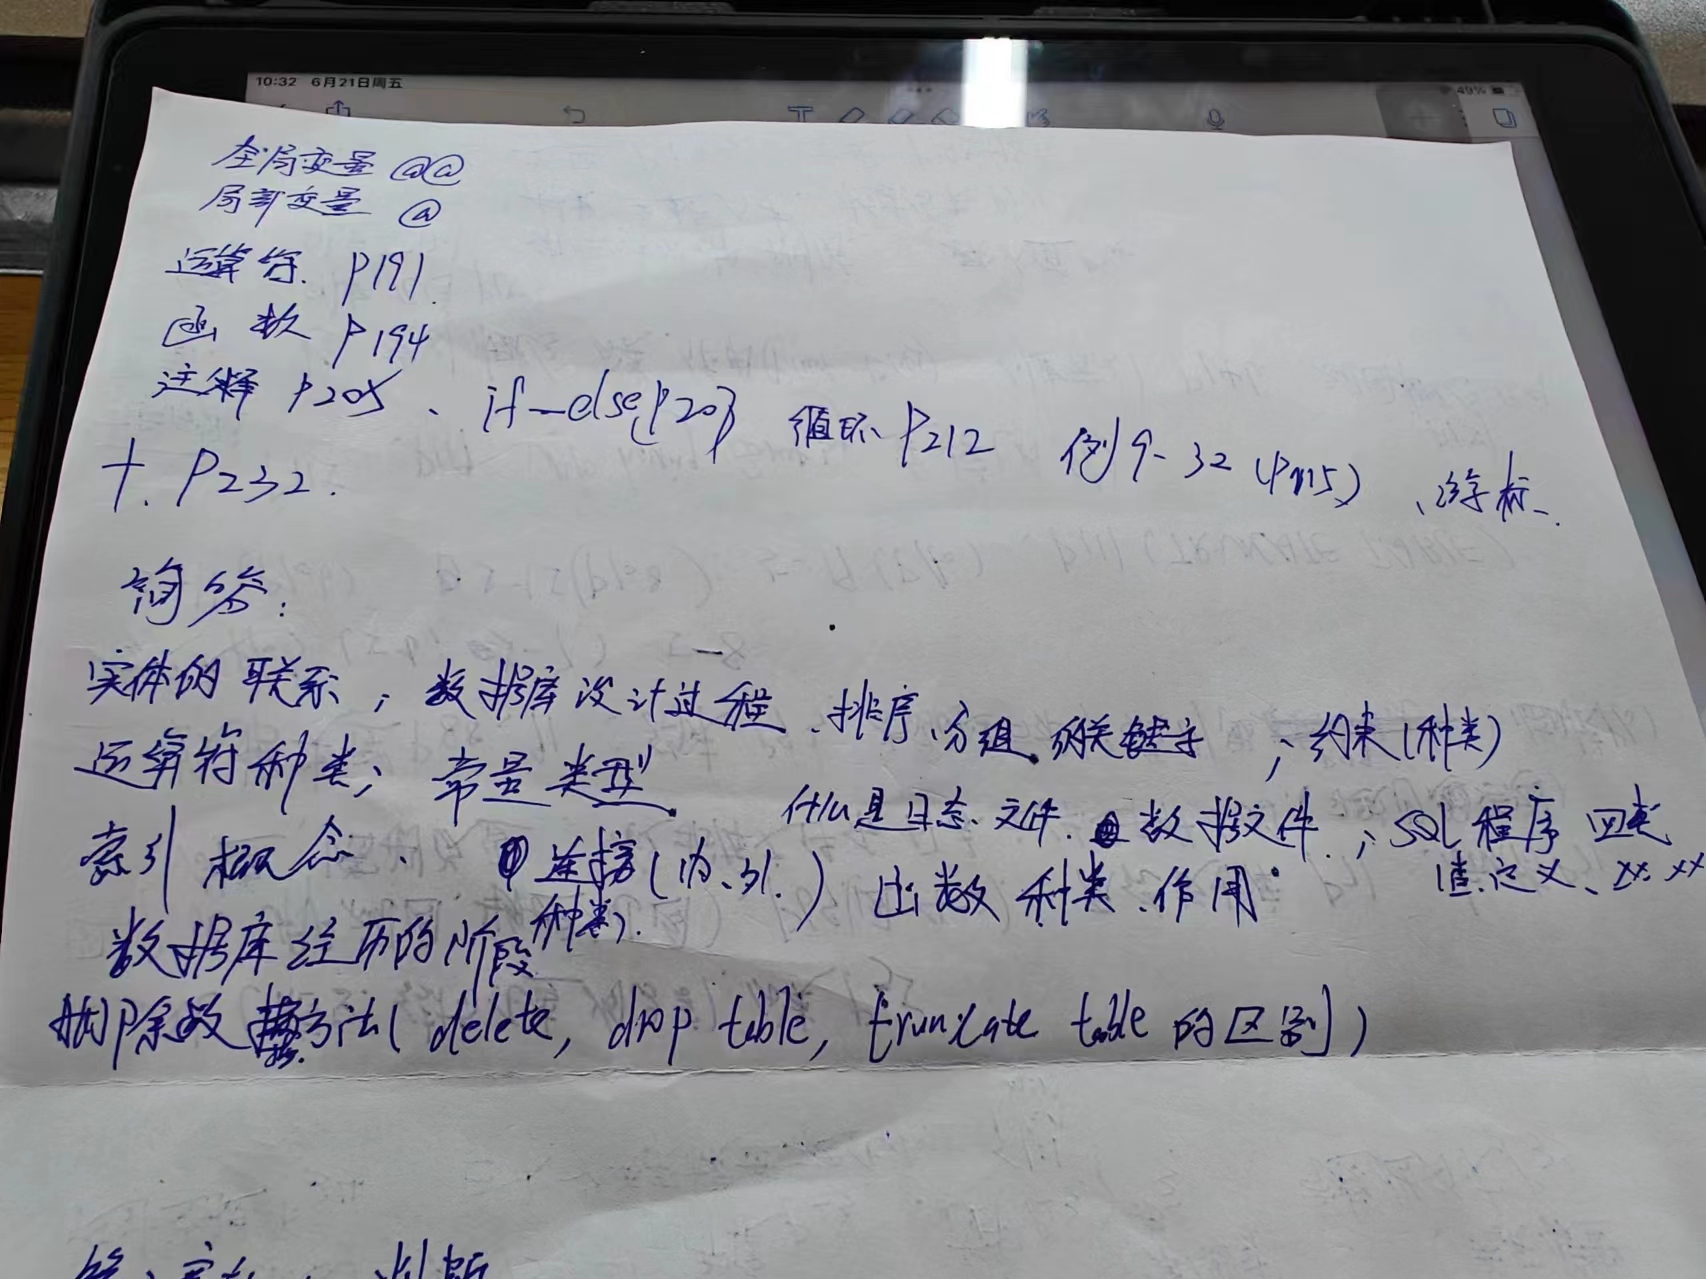 10:32 6月21日周五
49%
全局变量 @@
局部变量 @
运算符. P191.
函数 P194
注释 P205 、if-else(P207) 循环 P212 例9-32 (P215) 、游标.
十. P232.
简答:
实体的联系; 数据库设计过程、排序、分组 关键字 ; 约束(种类)
运算符种类; 常量类型. 什么是日志文件. 数据文件. ; SQL程序四类
索引概念. 连接(内、外.) 函数种类、作用. 值、定义、xx. xx
种类).
数据库经历的阶段
删除数据方法( delete, drop table, truncate table 的区别)
判断